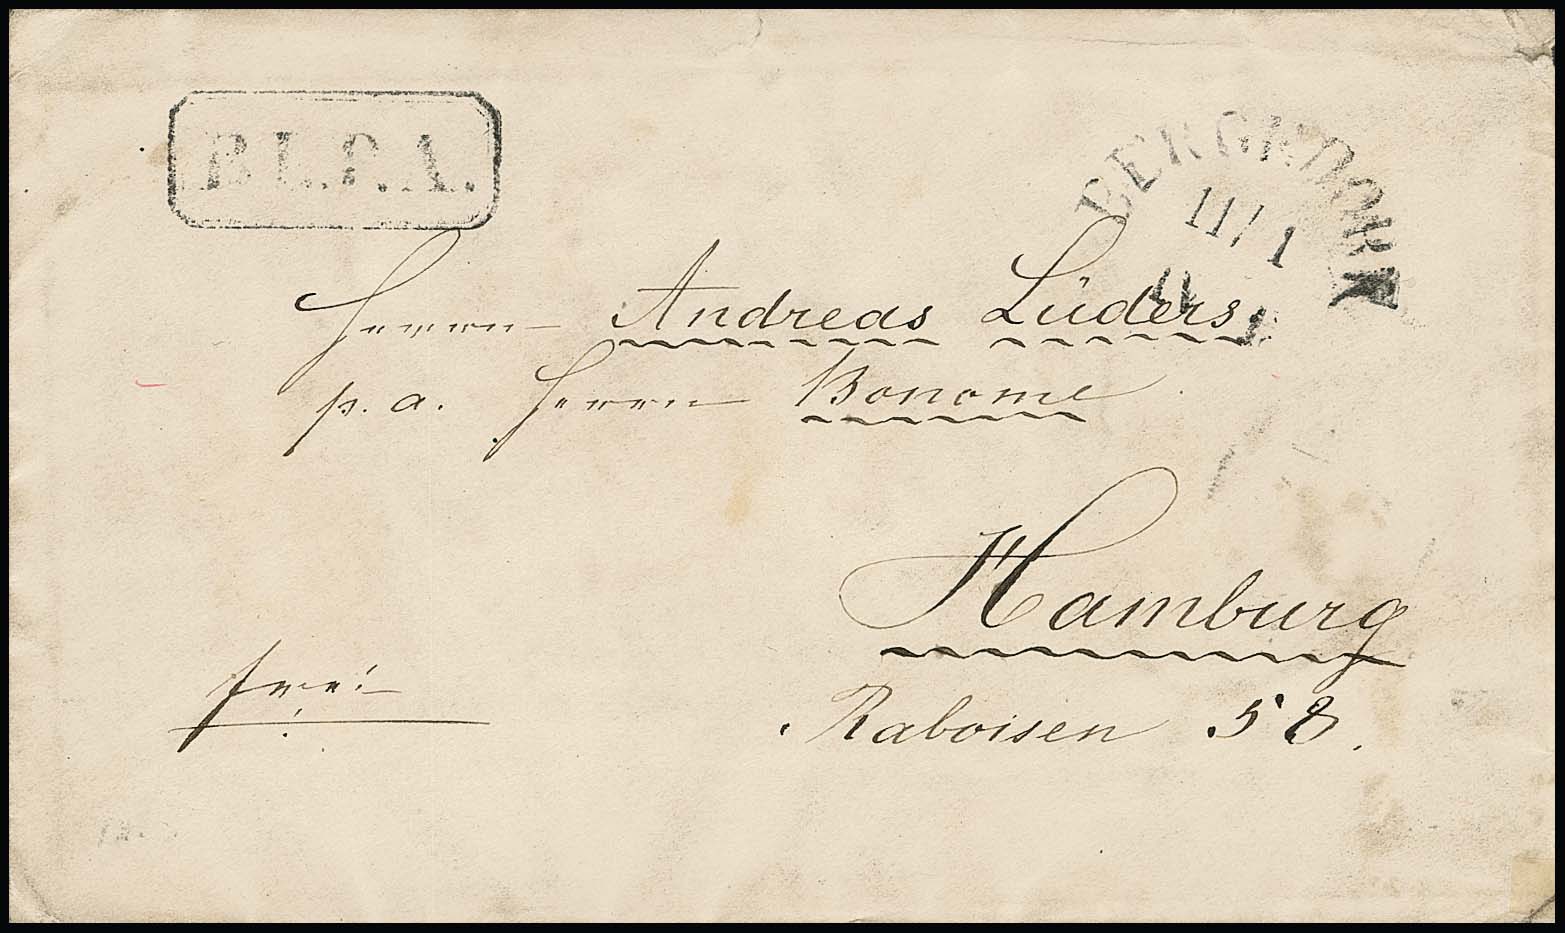 B.L.P.A.
BERGEDORF
11/1
Herrn Andreas Lüders,
p. a. Herrn Bonome
Hamburg
frei
Raboisen 58.